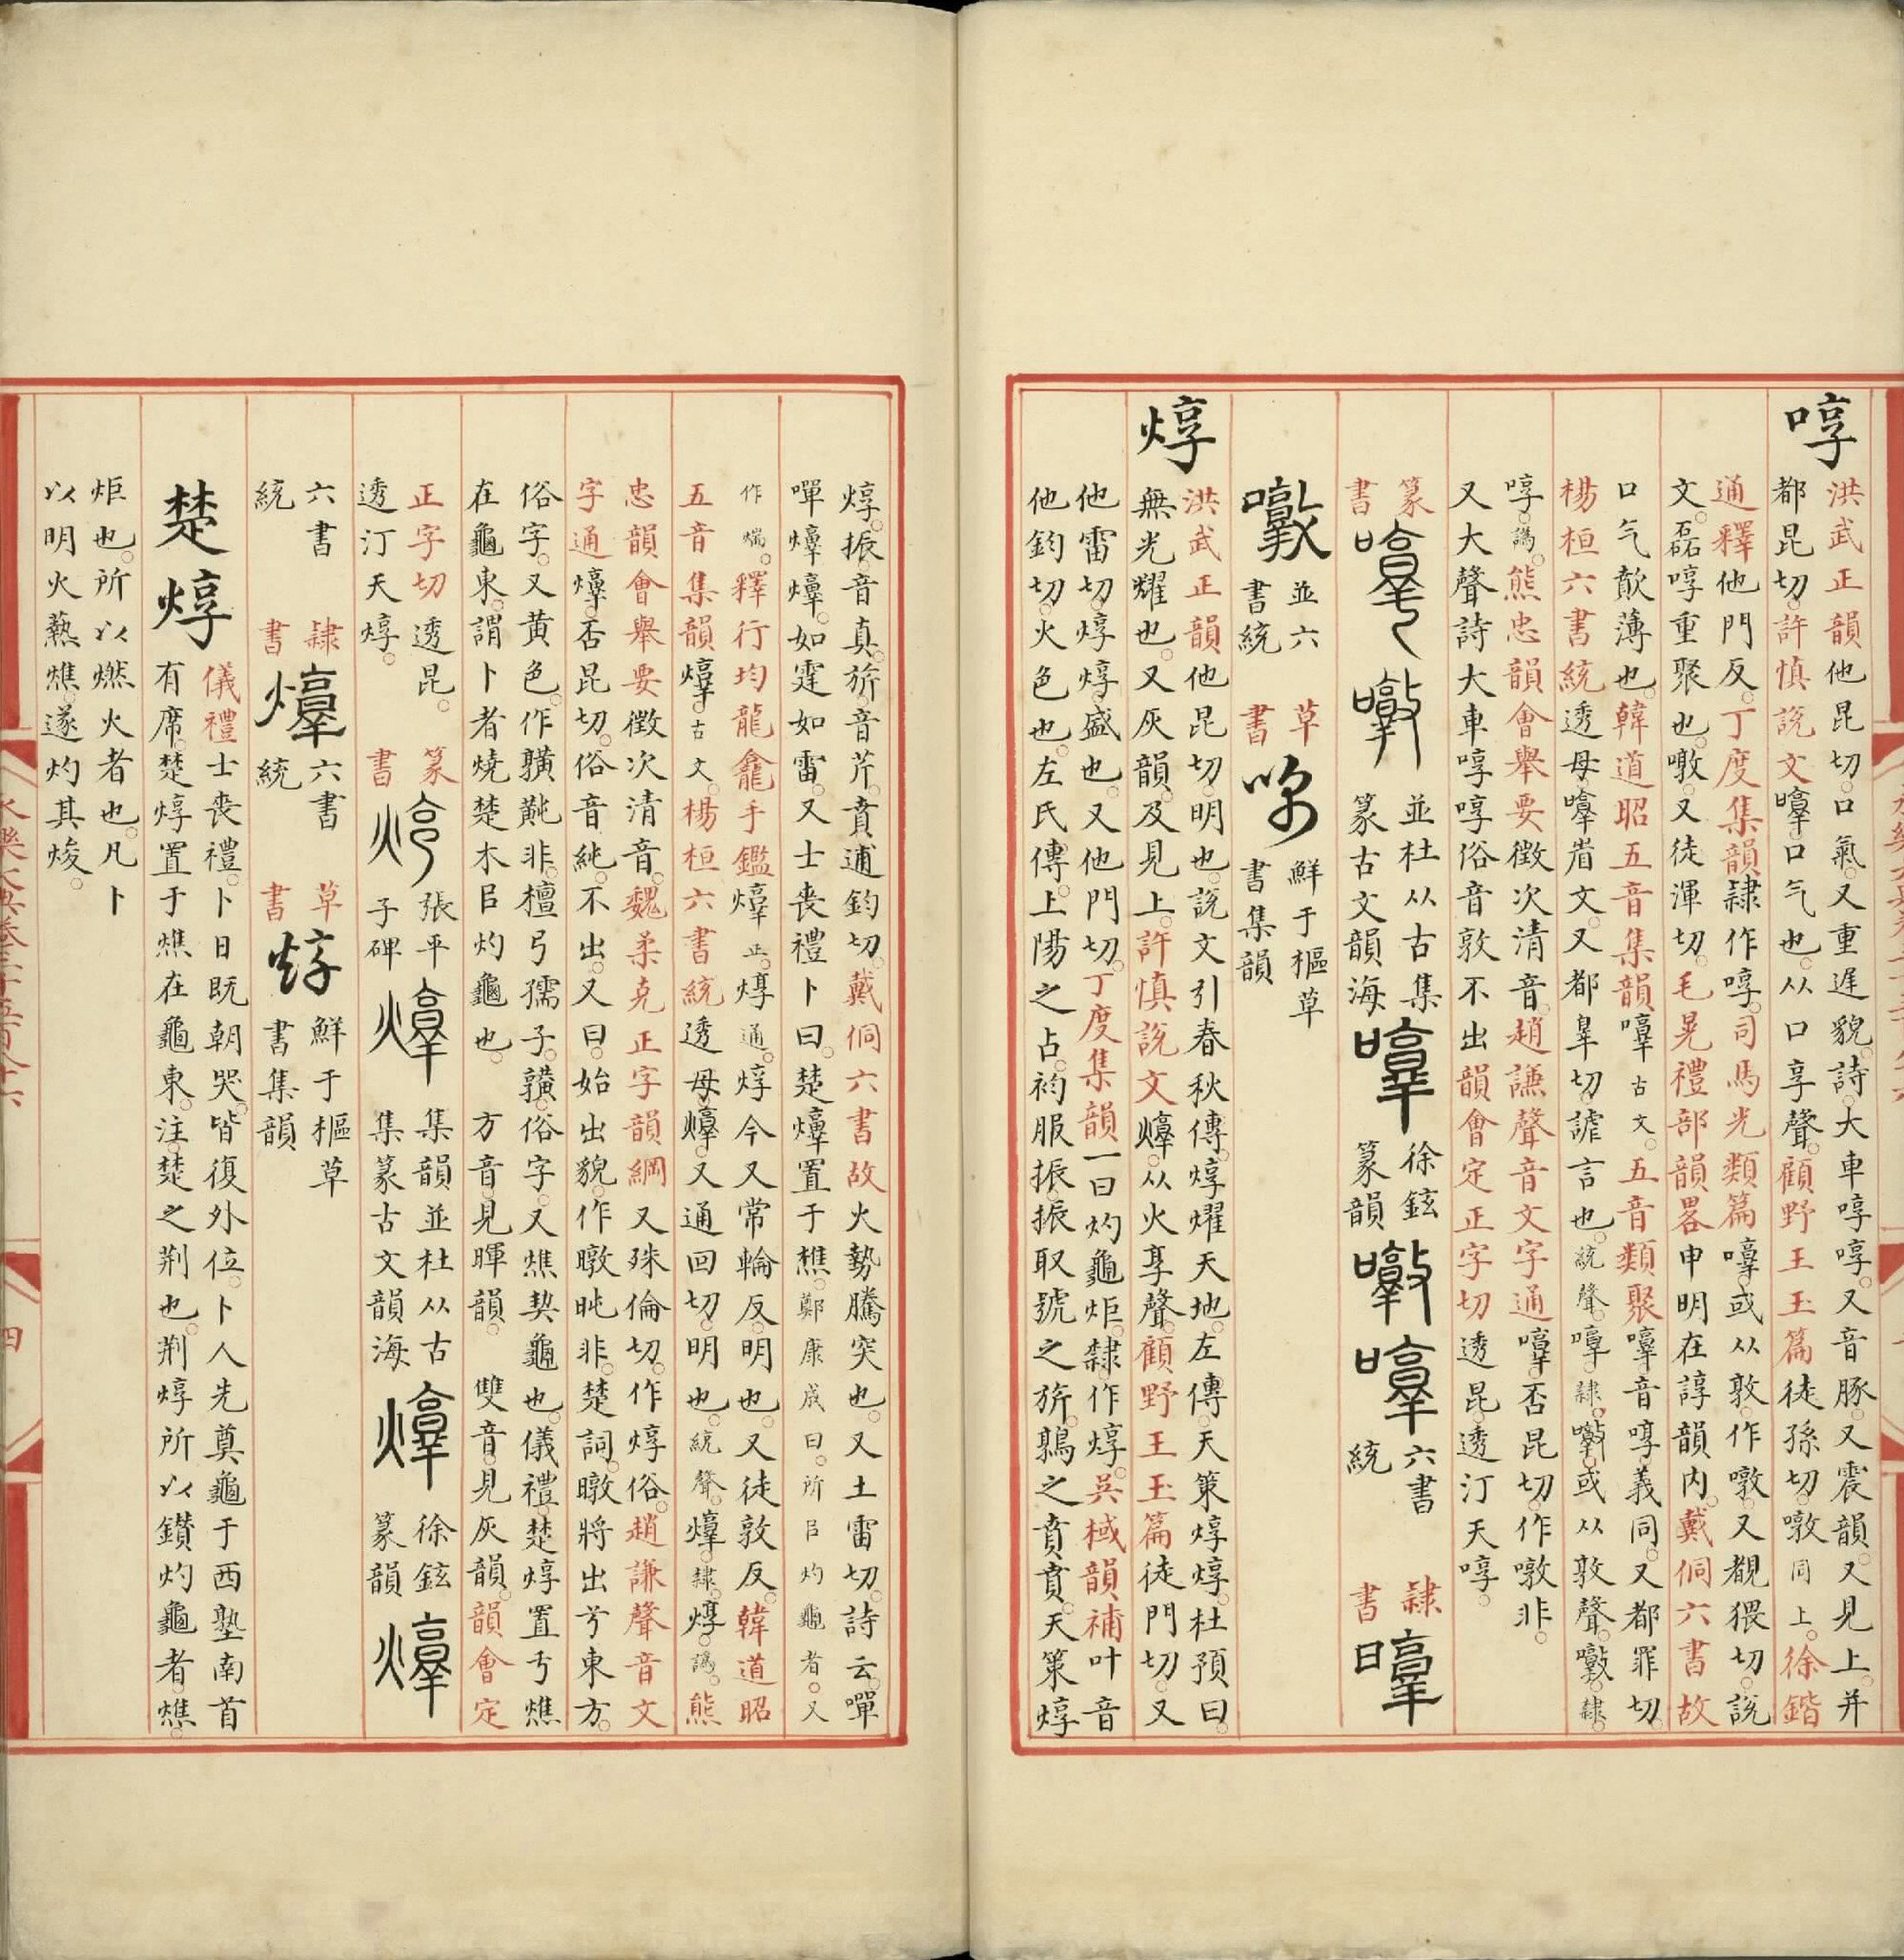 哼
洪武正韻他昆切口氣又重遲貌詩大車啍啍又音豚又震韻又見上并
都昆切許慎說文㖟口气也从口享聲顧野王玉篇徒孫切噋同上徐鍇
通釋他門反丁度集韻隸作啍司馬光類篇㖟或从敦作噋又覩猥切說
文磊啍重聚也噋又徒渾切毛晃禮部韻畧申明在諄韻内戴侗六書故
口气歕薄也韓道昭五音集韻㖟古文五音類聚㖟音啍義同又都罪切
楊桓六書統透母㖟省文又都辠切謔言也統聲啍隸或从敦聲噋隸
啍譌熊忠韻會舉要徵次清音趙謙聲音文字通㖟否昆切作噋非
又大聲詩大車啍啍俗音敦不出韻會定正字切透昆透汀天啍
篆書
並杜从古集篆古文韻海
徐鉉篆韻
六書統
隸書
噋
並六書統
草書
鮮于樞草書集韻
焞
洪武正韻他昆切明也說文引春秋傳焞燿天地左傳天策焞焞杜預曰
無光耀也又灰韻及見上許慎說文焞从火享聲顧野王玉篇徒門切又
他雷切焞焞盛也又他門切丁度集韻一曰灼龜炬隸作焞吳棫韻補叶音
他鈞切火色也左氏傳上陽之占袀服振振取號之旂鶉之賁賁天策焞
焞振音真旂音芹賁逋鈞切戴侗六書故火勢騰突也又土雷切詩云嘽
嘽焞焞如霆如雷又士喪禮卜曰楚焞置于燋鄭康成曰所㠯灼龜者又
作煓釋行均龍龕手鑑焞正焞通焞今又常輪反明也又徒敦反韓道昭
五音集韻焞古文楊桓六書統透母焞又通回切明也統聲焞隸焞譌熊
忠韻會舉要徵次清音魏柔克正字韻綱又殊倫切作焞俗趙謙聲音文
字通焞否昆切俗音純不出又曰始出貌作暾旽非楚詞暾將出兮東方
俗字又黄色作黗非檀弓孺子䵍俗字又燋契龜也儀禮楚焞置于燋
在龜東謂卜者燒楚木㠯灼龜也方音見暉韻雙音見灰韻韻會定
正字切透昆
透汀天焞
篆書
張平子碑
集韻並杜从古集篆古文韻海
徐鉉篆韻
六書統
隸書
六書統
草書
鮮于樞草書集韻
楚焞
儀禮士喪禮卜日既朝哭皆復外位卜人先奠龜于西塾南首
有席楚焞置于燋在龜東注楚之荆也荆焞所以鑽灼龜者燋
炬也所以燃火者也凡卜
以明火爇燋遂灼其焌
四